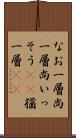 なお一層尚
一層尚いっ
そう猶
一層